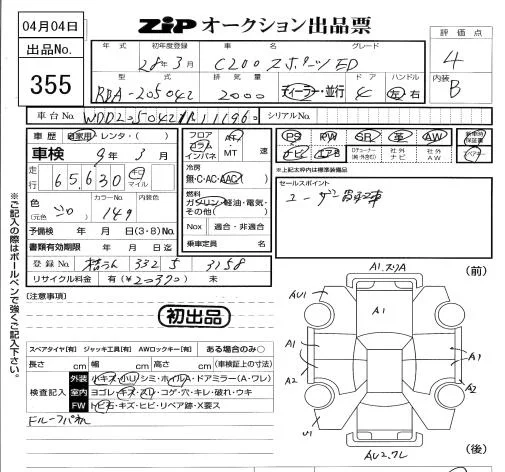 04月04日
出品No.
355
ZIP オークション出品票
評価点
4
内装
B
年式 初年度登録 車名 グレード
28年3月 C200 スポーツ ED
型式 排気量 ドア ハンドル
RBA-205042 2000 ディーラー・並行 4 左 右
車台No. シリアルNo.
車歴 自家用・レンタ・( )
車検 9年3月
走行 65,630 キロ マイル
色 (元色) シロ カラーNo. 149 内装色
予備検 年 月 日(3・8)No.
書類有効期限 年 月 日迄
登録No. 332 5 3158
リサイクル料金 有(¥ ) 未
フロア コラム インパネ AT MT 速
冷房 無・C・AC・AAC
燃料 ガソリン・軽油・電気・その他( )
Nox 適合・非適合
乗車定員 名
PS PW SR 革 AW
ナビ エアB Dチューナー(純・外含む) 社外ナビ 社外AW
新車時保証書
※上記太枠内は標準装備品
セールスポイント
ユーザー買取車
[注意事項]
初出品
スペアタイヤ[有] ジャッキ工具[有] AWロックキー[有] ある場合のみ○
長さ cm 幅 cm 高さ cm (車検証上の寸法)
検査記入
外装 小キズ・小U・シミ・ホイルA・ドアミラー(A・ワレ)
室内 ヨゴレ・キズ・スレ・コゲ・穴・キレ・破れ・ウキ
FW トビ石・キズ・ヒビ・リペア跡・X要ス
※ご記入の際はボールペンで強くご記入下さい。
(前)
A1.スリA
AU1
A1
A1
A1
A2
A2
U1
AU2.ワレ
(後)